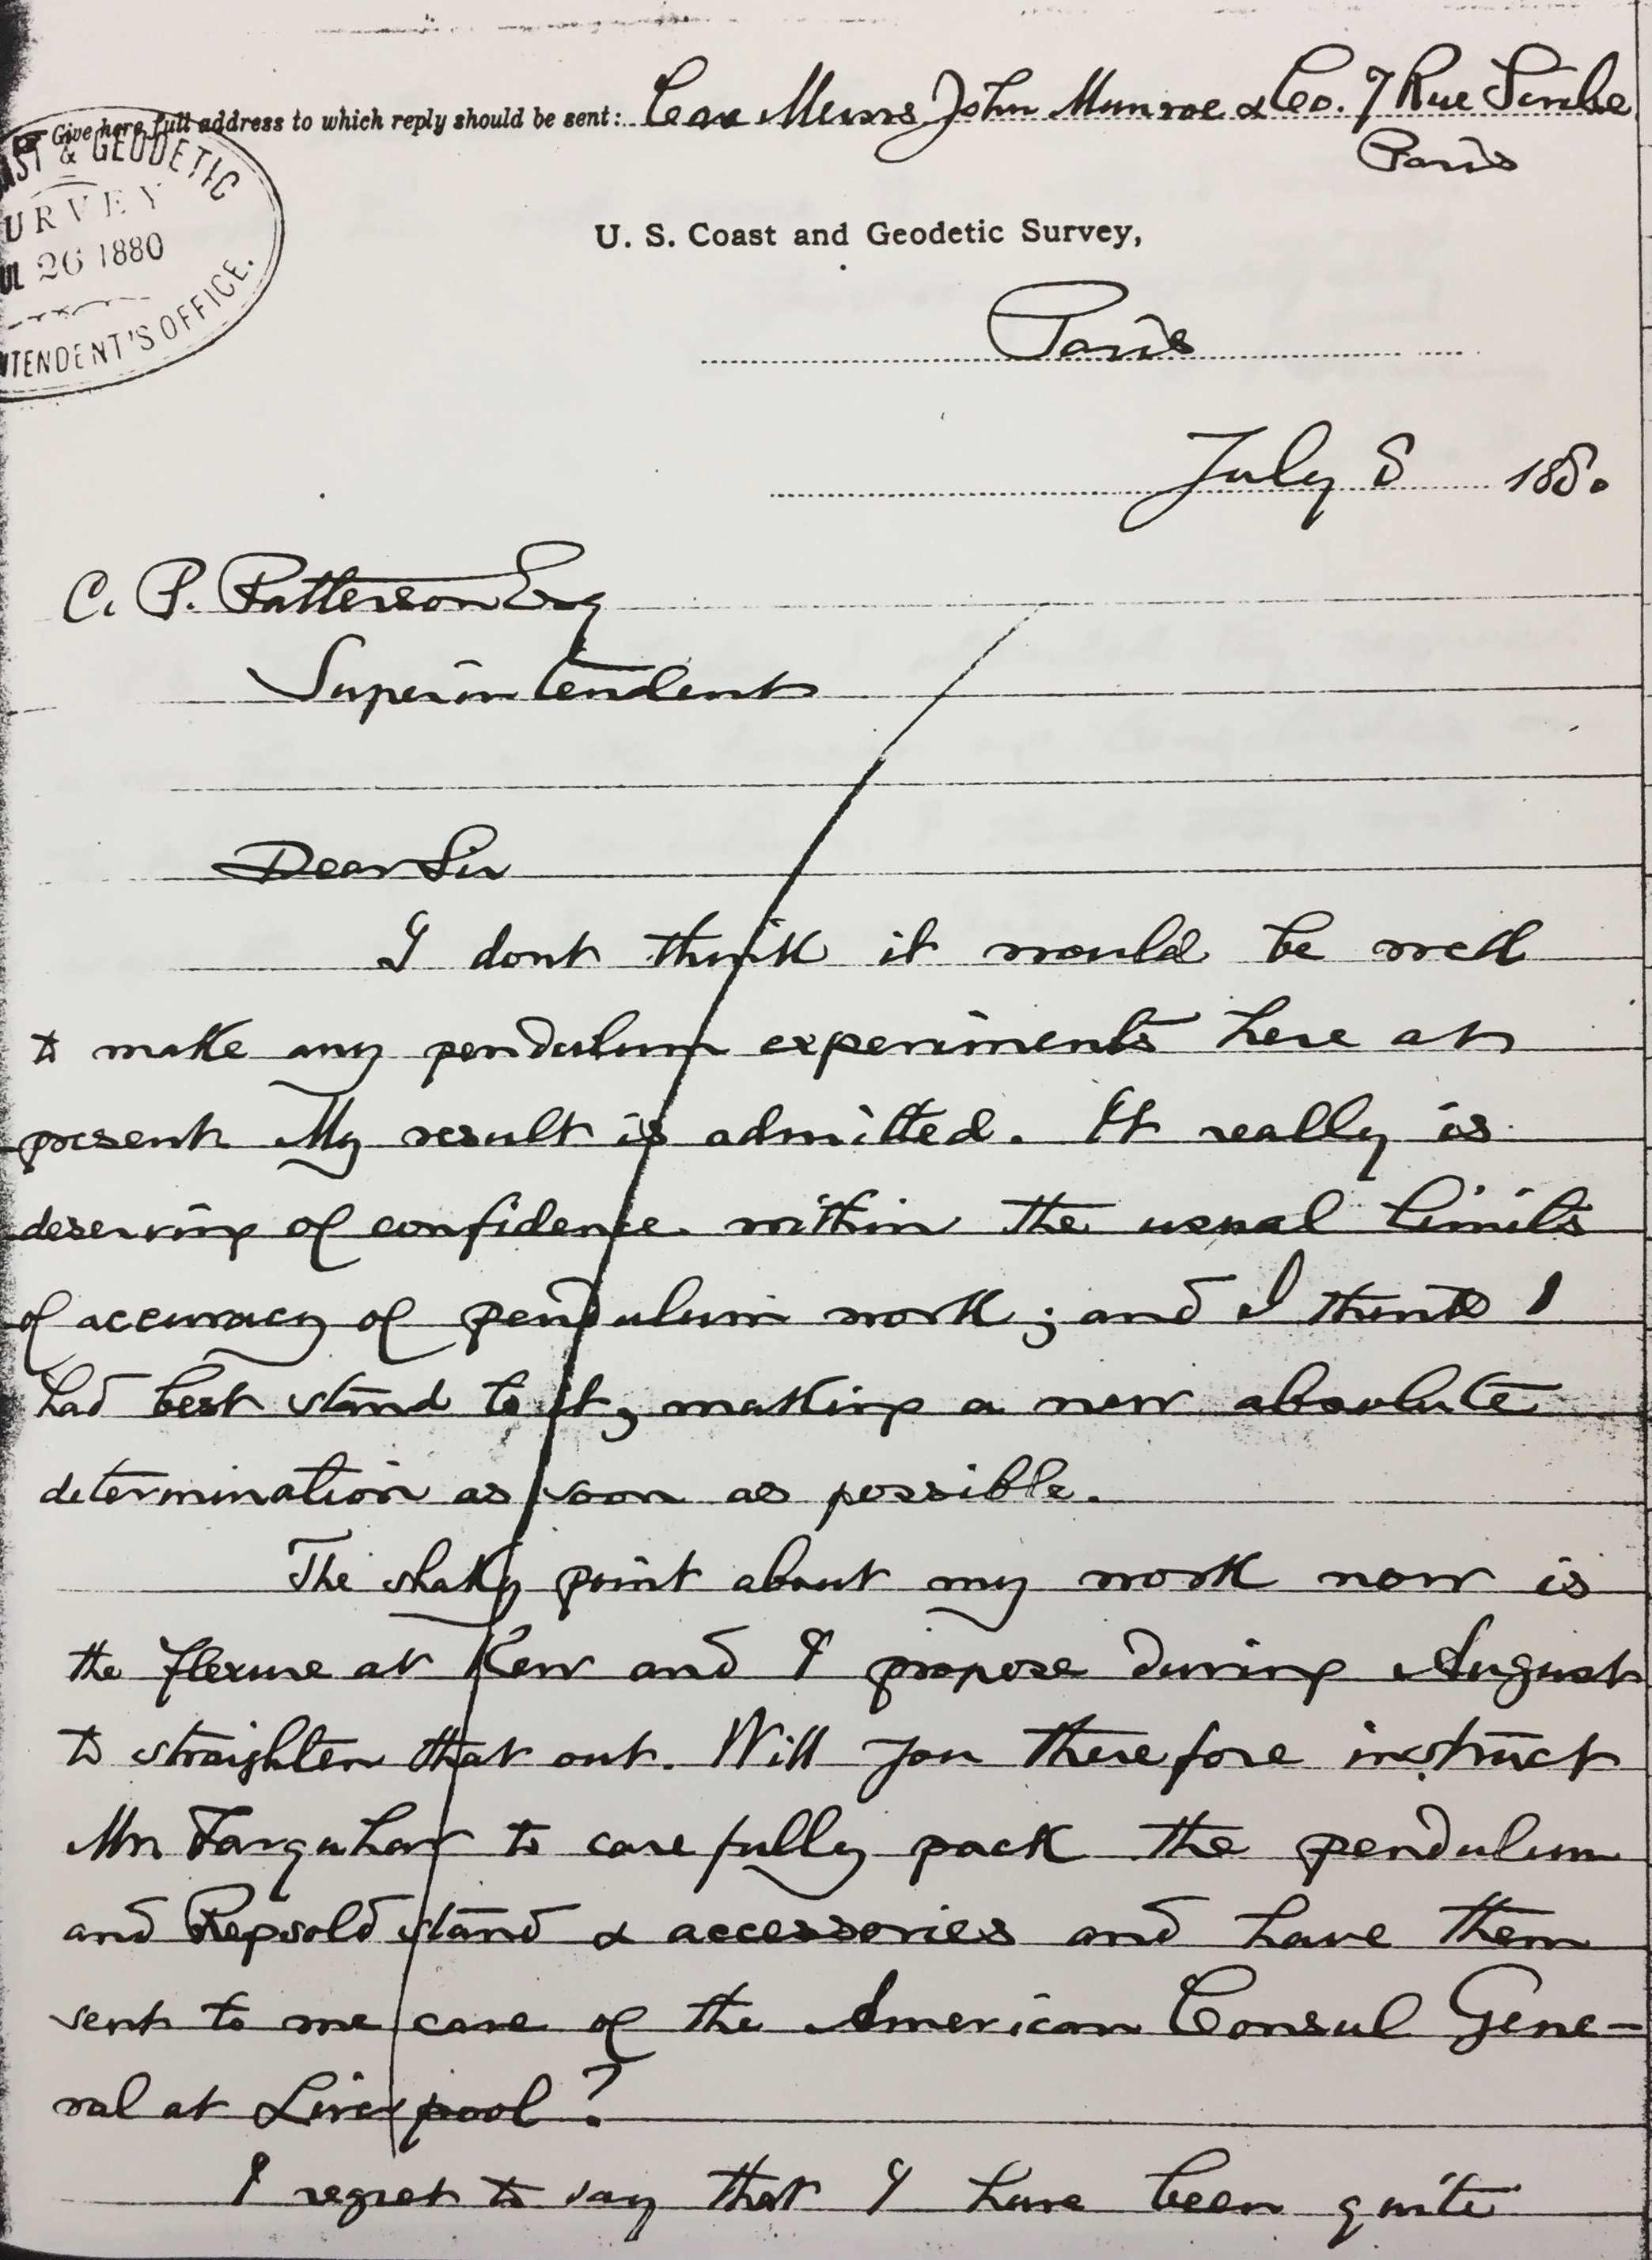 Give here full address to which reply should be sent: Care Messrs John Munroe & Co. 7 Rue Scribe
Paris
AST & GEODETIC
URVEY
UL 26 1880
NTENDENT'S OFFICE.
U. S. Coast and Geodetic Survey,
Paris
July 8 1880
C. P. Patterson Esq
Superintendent
Dear Sir
I dont think it would be well
to make any pendulum experiments here at
present. My result is admitted. It really is
deserving of confidence within the usual limits
of accuracy of pendulum work; and I think I
had best stand to it, making a new absolute
determination as soon as possible.
The shaky point about my work now is
the flexure at Kew and I propose during August
to straighten that out. Will you therefore instruct
Mr Farquhar to carefully pack the pendulum
and Repsold stand & accessories and have them
sent to me care of the American Consul Gene-
ral at Liverpool?
I regret to say that I have been quite